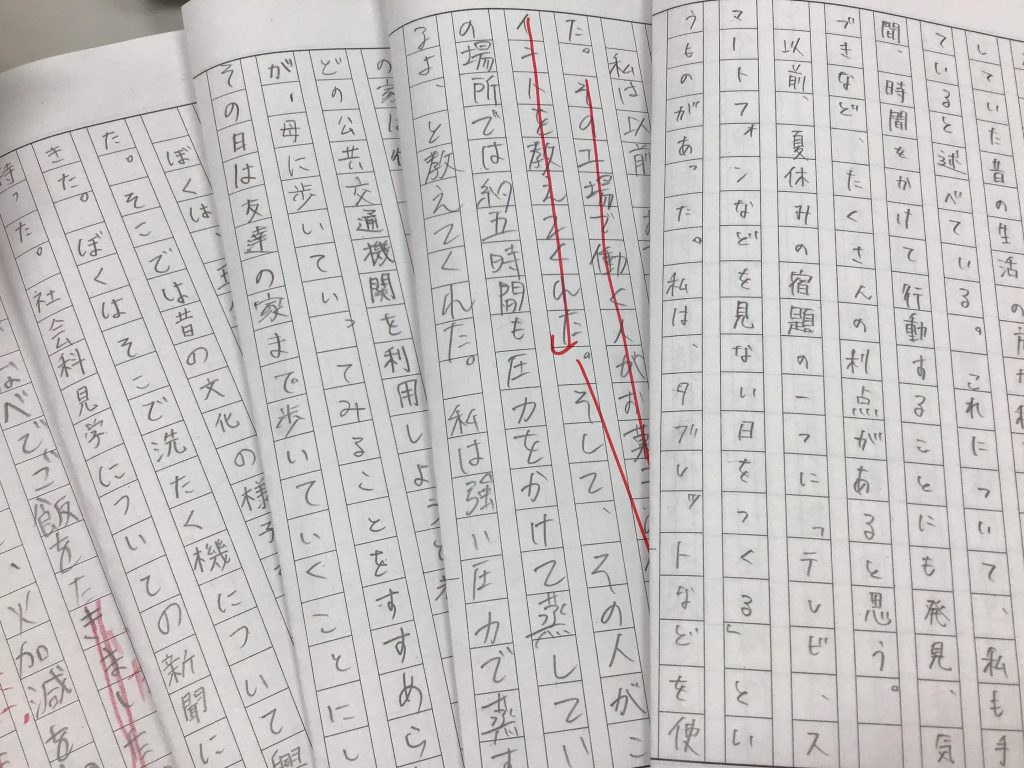 していた昔の生活の方
ていると述べている。これについて、私も手
間、時間をかけて行動することにも発見、気
づきなど、たくさんの利点があると思う。
以前、夏休みの宿題の一つに「テレビ、ス
マートフォンなどを見ない日をつくる」とい
うものがあった。私は、タブレットなどを使
私は以前
た。その工場で働く人がお
イントを教えてくれた。そして、その人がこ
の場所では約五時間も圧力をかけて蒸してい
るよ、と教えてくれた。私は強い圧力で蒸す
の家
どの公共交通機関を利用しようと
が、母に歩いていってみることをすすめら
その日は友達の家まで歩いていくことにし
ぼくは、
た。そこでは昔の文化の様子
きた。ぼくはそこで洗たく機について興
持った。社会科見学についての新聞に
なべでご飯をたきました
、火加減を